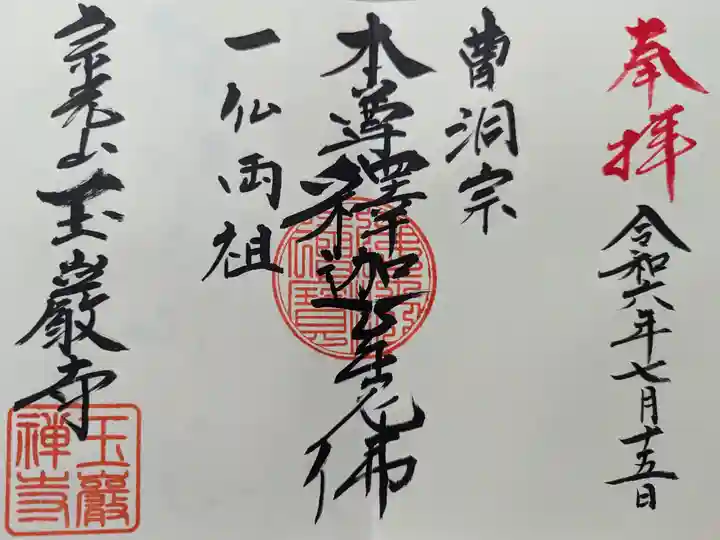 奉拝
令和六年七月十五日
曹洞宗
本尊釋迦牟尼佛
一仏両祖
宗光山玉巖寺
玉巖
禅寺